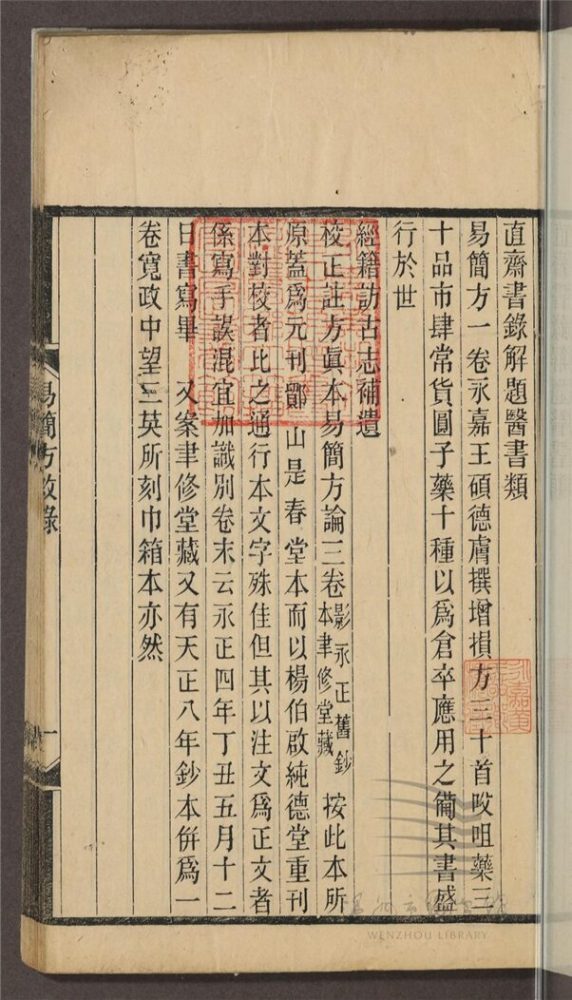 直齋書錄解題醫書類
易簡方一卷永嘉王碩德膚撰增損方三十首㕮咀藥三
十品市肆常貨圓子藥十種以爲倉卒應用之備其書盛
行於世
經籍訪古志補遺
校正註方眞本易簡方論三卷影永正舊鈔本聿修堂藏 按此本所
原蓋爲元刊鄞山是春堂本而以楊伯啟純德堂重刊
本對校者比之通行本文字殊佳但其以注文爲正文者
係寫手誤混宜加識別卷末云永正四年丁丑五月十二
日書寫畢 又案聿修堂藏又有天正八年鈔本併爲一
卷寬政中望三英所刻巾箱本亦然
易簡方攷錄
一
WENZHOU LIBRARY